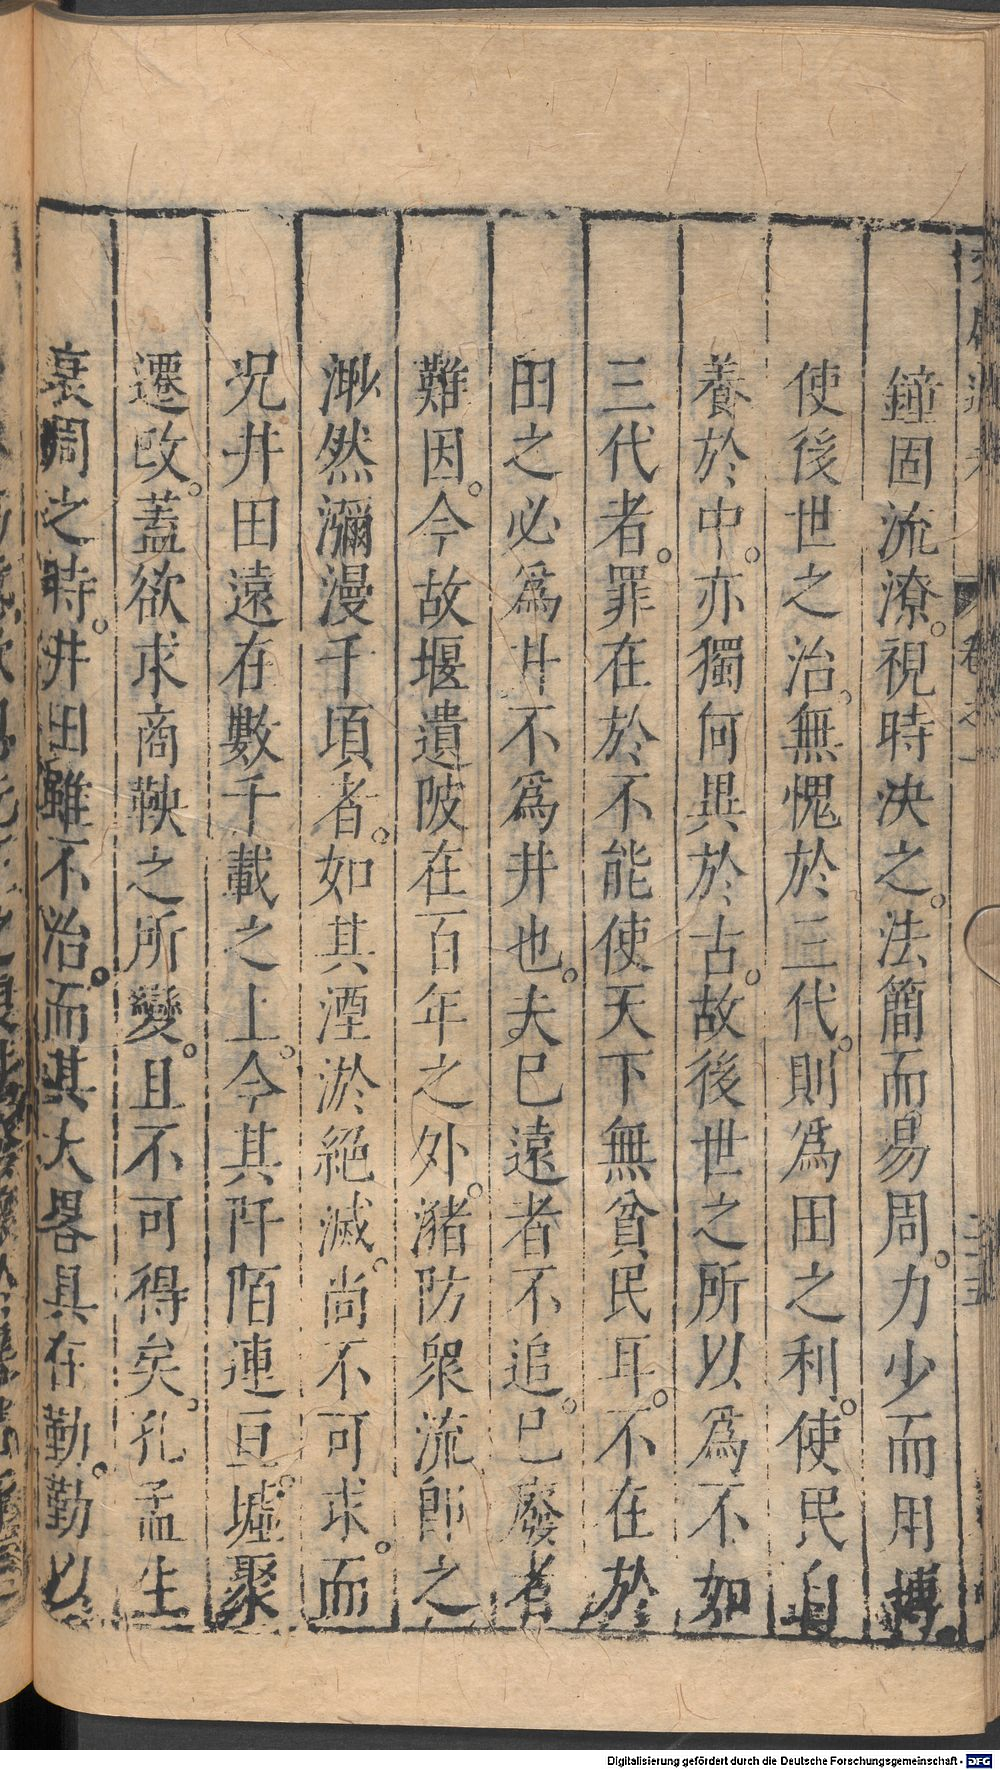 鐘固流潦。視時決之。法簡而易周。力少而用博。
使後世之治。無愧於三代。則爲田之利。使民自
養於中。亦獨何異於古。故後世之所以爲不如
三代者。罪在於不能使天下無貧民耳。不在於
田之必爲井不爲井也。夫已遠者不追。已廢者
難因。今故堰遺陂在百年之外。瀦防衆流。卽之
渺然瀰漫千頃者。如其湮淤絶滅。尚不可求。而
况井田遠在數千載之上。今其阡陌連亘。墟聚
遷改。蓋欲求商鞅之所變。且不可得矣。孔孟生
衰周之時。井田雖不治。而其大畧具在。勤勤以
Digitalisierung gefördert durch die Deutsche Forschungsgemeinschaft - DFG